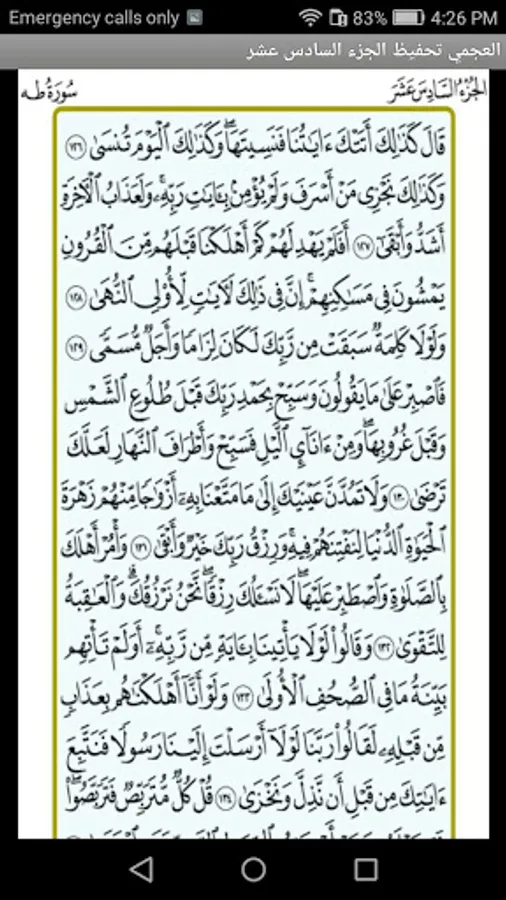 Emergency calls only 83% 4:26 PM
العجمي تحفيظ الجزء السادس عشر
الجُزْءُ السَّادِسَ عَشَرَ سُورَةُ طه
قَالَ كَذَٰلِكَ أَتَتْكَ ءَايَٰتُنَا فَنَسِيتَهَا ۖ وَكَذَٰلِكَ ٱلْيَوْمَ تُنسَىٰ ١٢٦
وَكَذَٰلِكَ نَجْزِى مَنْ أَسْرَفَ وَلَمْ يُؤْمِنۢ بِـَٔايَٰتِ رَبِّهِۦ ۚ وَلَعَذَابُ ٱلْـَٔاخِرَةِ
أَشَدُّ وَأَبْقَىٰٓ ١٢٧ أَفَلَمْ يَهْدِ لَهُمْ كَمْ أَهْلَكْنَا قَبْلَهُم مِّنَ ٱلْقُرُونِ
يَمْشُونَ فِى مَسَٰكِنِهِمْ ۗ إِنَّ فِى ذَٰلِكَ لَـَٔايَٰتٍ لِّأُو۟لِى ٱلنُّهَىٰ ١٢٨
وَلَوْلَا كَلِمَةٌ سَبَقَتْ مِن رَّبِّكَ لَكَانَ لِزَامًا وَأَجَلٌ مُّسَمًّى ١٢٩
فَٱصْبِرْ عَلَىٰ مَا يَقُولُونَ وَسَبِّحْ بِحَمْدِ رَبِّكَ قَبْلَ طُلُوعِ ٱلشَّمْسِ
وَقَبْلَ غُرُوبِهَا ۖ وَمِنْ ءَانَآئِ ٱلَّيْلِ فَسَبِّحْ وَأَطْرَافَ ٱلنَّهَارِ لَعَلَّكَ
تَرْضَىٰ ١٣٠ وَلَا تَمُدَّنَّ عَيْنَيْكَ إِلَىٰ مَا مَتَّعْنَا بِهِۦٓ أَزْوَٰجًا مِّنْهُمْ زَهْرَةَ
ٱلْحَيَوٰةِ ٱلدُّنْيَا لِنَفْتِنَهُمْ فِيهِ ۚ وَرِزْقُ رَبِّكَ خَيْرٌ وَأَبْقَىٰ ١٣١ وَأْمُرْ أَهْلَكَ
بِٱلصَّلَوٰةِ وَٱصْطَبِرْ عَلَيْهَا ۖ لَا نَسْـَٔلُكَ رِزْقًا ۖ نَّحْنُ نَرْزُقُكَ ۗ وَٱلْعَٰقِبَةُ
لِلتَّقْوَىٰ ١٣٢ وَقَالُوا۟ لَوْلَا يَأْتِينَا بِـَٔايَةٍ مِّن رَّبِّهِۦٓ ۚ أَوَلَمْ تَأْتِهِم
بَيِّنَةُ مَا فِى ٱلصُّحُفِ ٱلْأُولَىٰ ١٣٣ وَلَوْ أَنَّآ أَهْلَكْنَٰهُم بِعَذَابٍ
مِّن قَبْلِهِۦ لَقَالُوا۟ رَبَّنَا لَوْلَآ أَرْسَلْتَ إِلَيْنَا رَسُولًا فَنَتَّبِعَ
ءَايَٰتِكَ مِن قَبْلِ أَن نَّذِلَّ وَنَخْزَىٰ ١٣٤ قُلْ كُلٌّ مُّتَرَبِّصٌ فَتَرَبَّصُوا۟ ۖ